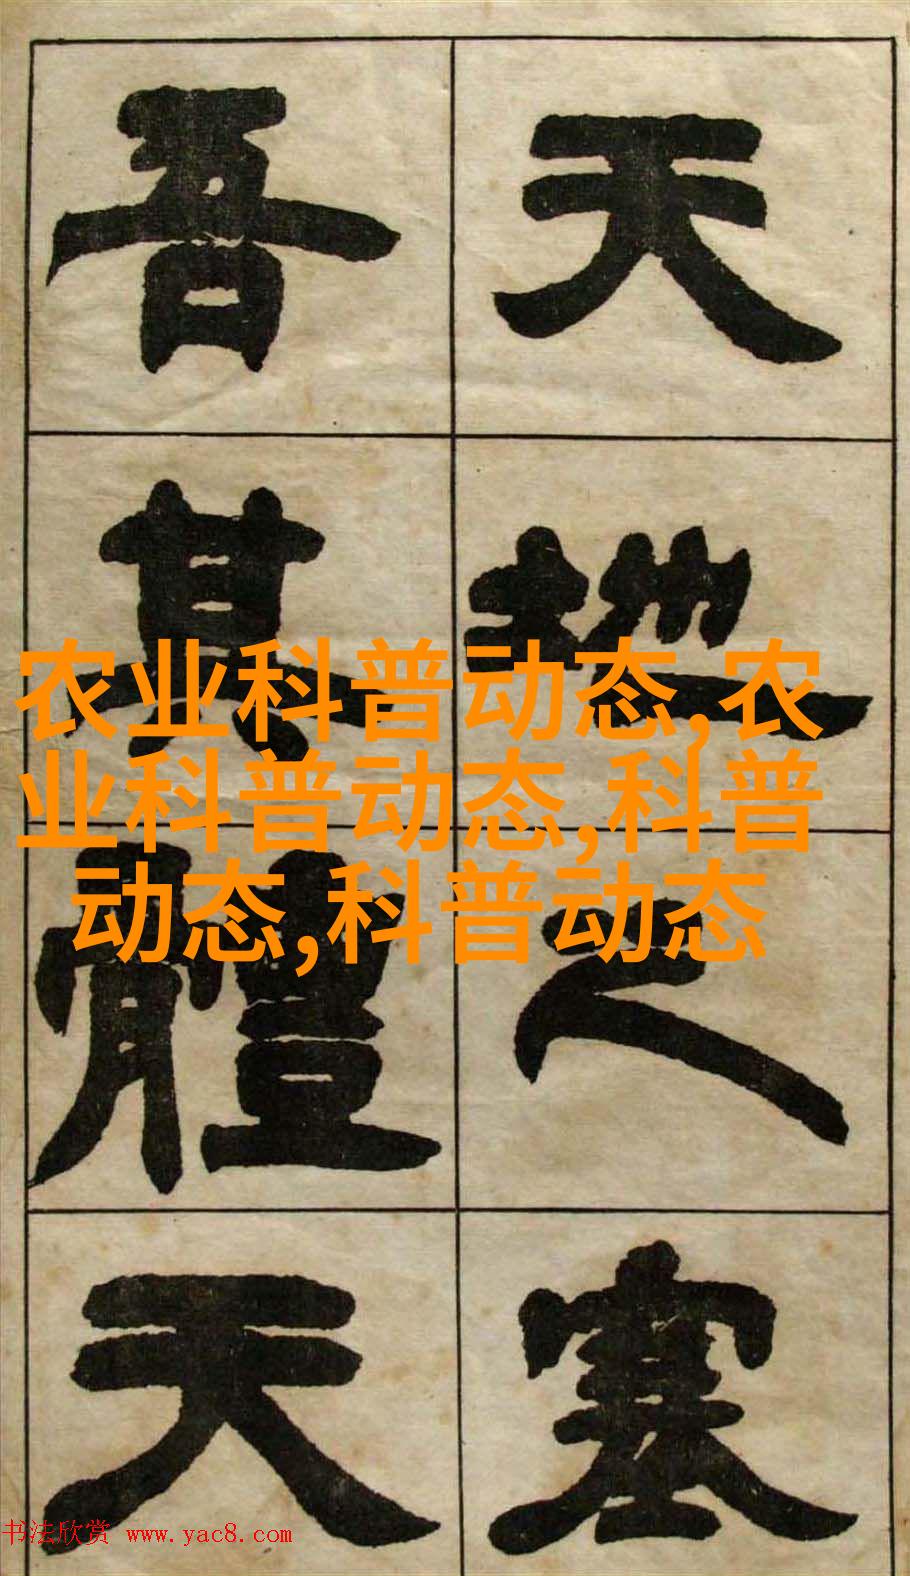 天地之塞
吾其體天
农业科普动态,农
业科普动态,科普
动态,科普动态
书法欣赏 www.yac8.com